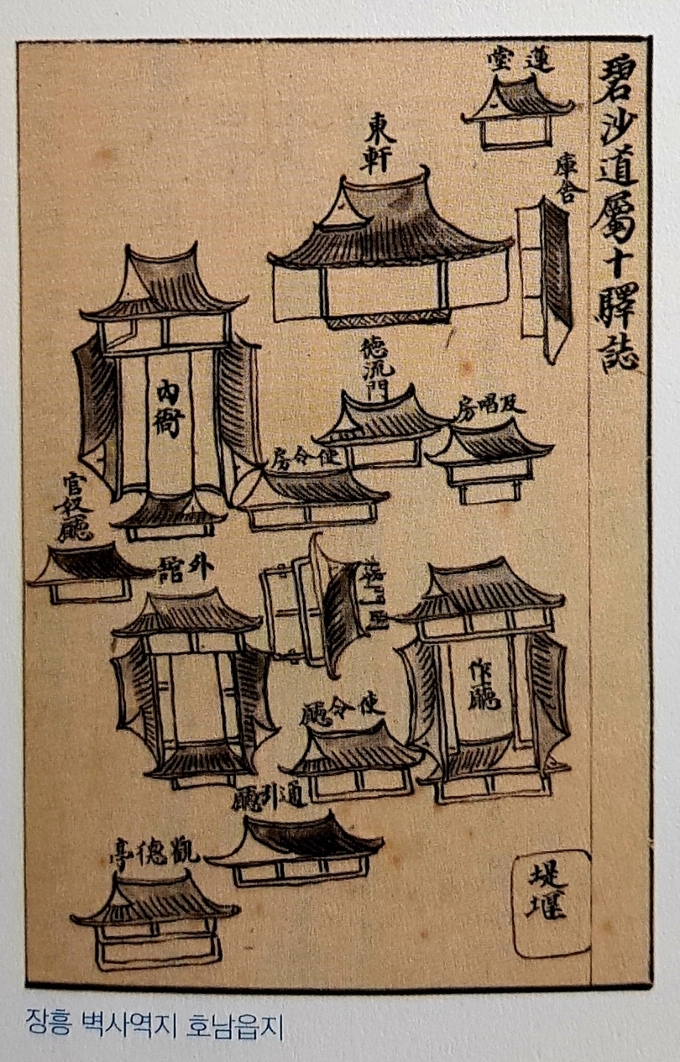 碧沙道屬十驛誌
蓮堂
庫舍
東軒
德流門
及唱房
使令房
內衙
官奴廳
外舘
作廳
使令廳
通引廳
觀德亭
堤堰
장흥 벽사역지 호남읍지